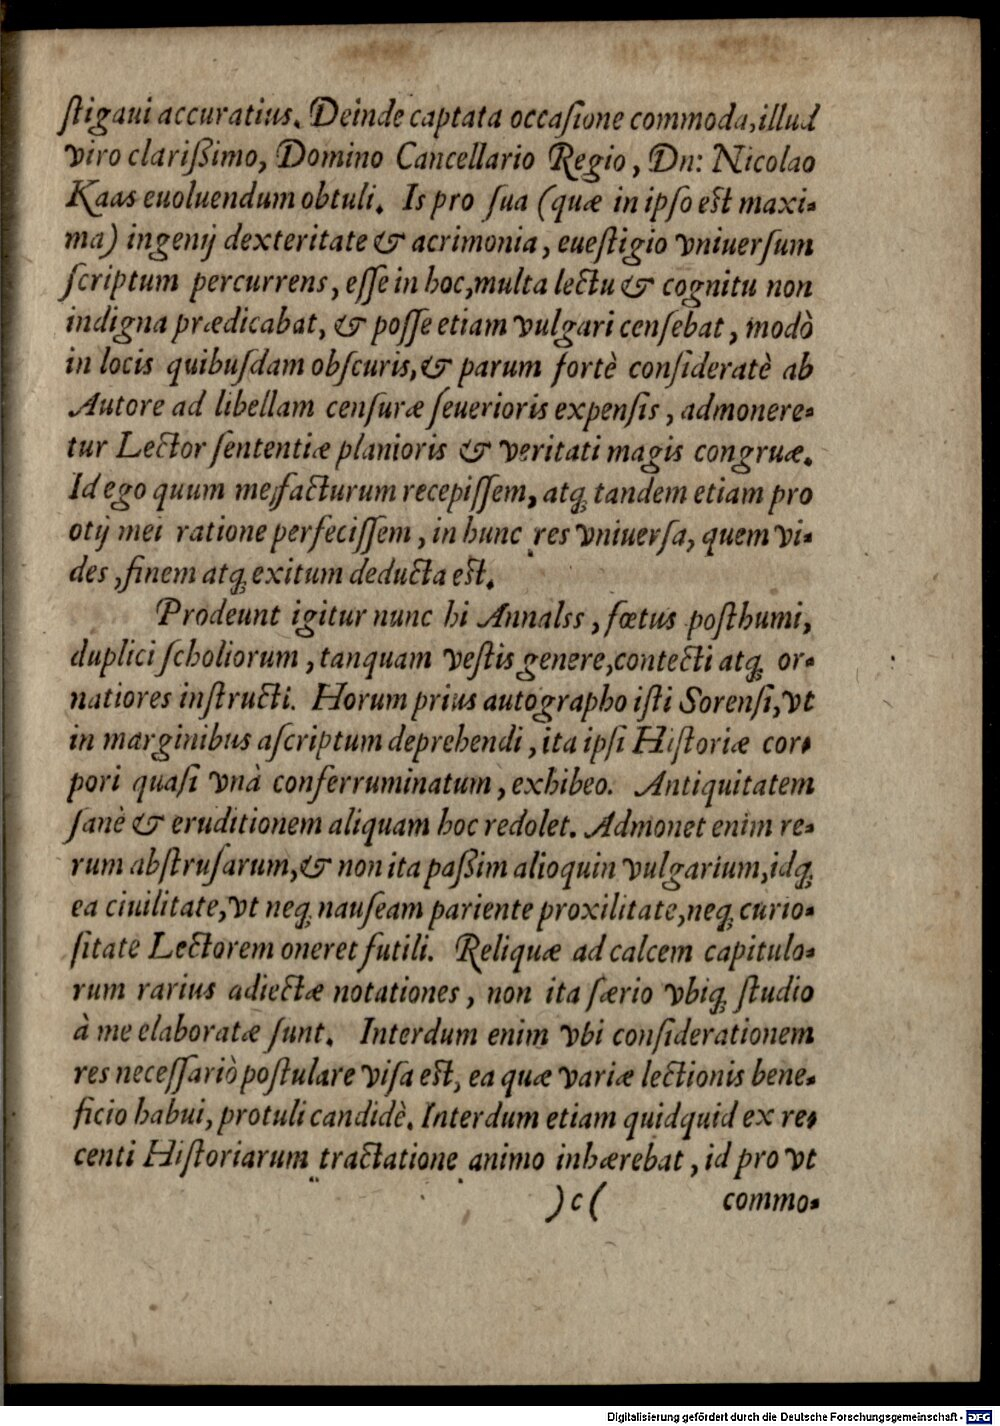 ſtigaui accuratius. Deinde captata occaſione commoda, illud
viro clarißimo, Domino Cancellario Regio, Dn: Nicolao
Kaas euoluendum obtuli. Is pro ſua (quæ in ipſo est maxi-
ma) ingenij dexteritate & acrimonia, eueſtigio vniuerſum
ſcriptum percurrens, eſſe in hoc, multa lectu & cognitu non
indigna prædicabat, & poſſe etiam vulgari cenſebat, modò
in locis quibuſdam obſcuris, & parum fortè conſideratè ab
Autore ad libellam cenſuræ ſeuerioris expenſis, admonere-
tur Lector ſententiæ planioris & veritati magis congruæ.
Id ego quum me facturum recepiſſem, atq́ tandem etiam pro
otij mei ratione perfeciſſem, in hunc res vniuerſa, quem vi-
des, finem atq́ exitum deducta est.
Prodeunt igitur nunc hi Annalss, fœtus poſthumi,
duplici ſcholiorum, tanquam veſtis genere, contecti atq́ or-
natiores inſtructi. Horum prius autographo iſti Sorenſi, vt
in marginibus aſcriptum deprehendi, ita ipſi Hiſtoriæ cor-
pori quaſi vnà conferruminatum, exhibeo. Antiquitatem
ſanè & eruditionem aliquam hoc redolet. Admonet enim re-
rum abſtruſarum, & non ita paßim alioquin vulgarium, idq́
ea ciuilitate, vt neq́ nauſeam pariente proxilitate, neq́ curio-
ſitate Lectorem oneret futili. Reliquæ ad calcem capitulo-
rum rarius adiectæ notationes, non ita ſærio vbiq́ ſtudio
à me elaboratæ ſunt. Interdum enim vbi conſiderationem
res neceſſariò poſtulare viſa est, ea quæ variæ lectionis bene-
ficio habui, protuli candidè. Interdum etiam quidquid ex re-
centi Hiſtoriarum tractatione animo inhærebat, id pro vt
)c( commo-
Digitalisierung gefördert durch die Deutsche Forschungsgemeinschaft - DFG